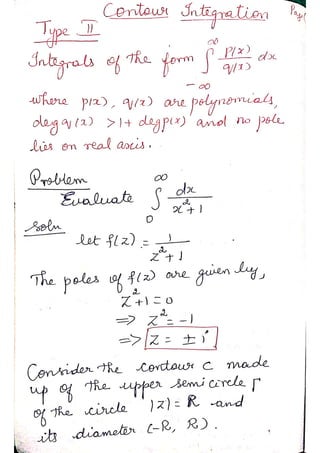 Contour Integration Page 1
Type II
Integrals of the form ∫_{-∞}^{∞} p(x)/q(x) dx
where p(x), q(x) are polynomials,
deg q(x) > 1 + deg p(x) and no pole
lies on real axis.
Problem
Evaluate ∫_0^∞ dx/(x²+1)
Soln
let f(z) = 1/(z²+1)
The poles of f(z) are given by,
z²+1 = 0
⇒ z² = -1
⇒ z = ± i
Consider the contour C made
up of the upper semi circle Γ
of the circle |z| = R and
its diameter (-R, R).